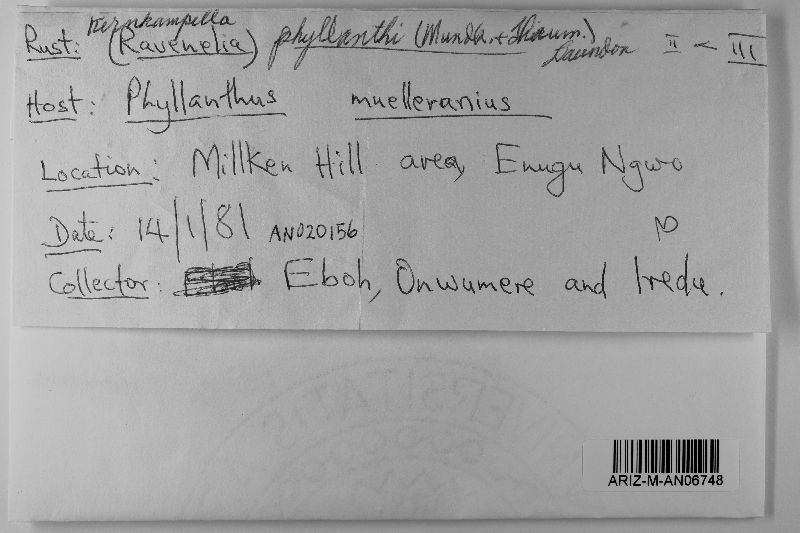 Kernkampella
Rust: (Ravenelia) phyllanthi (Mundk. + Thirum.) Laundon II < III
Host: Phyllanthus muelleranius
Location: Millken Hill area, Enugu Ngwo
Date: 14/1/81 AN020156 N
Collector: Eboh, Onwumere and Iredu.
VERSITATIS
ARIZ-M-AN06748